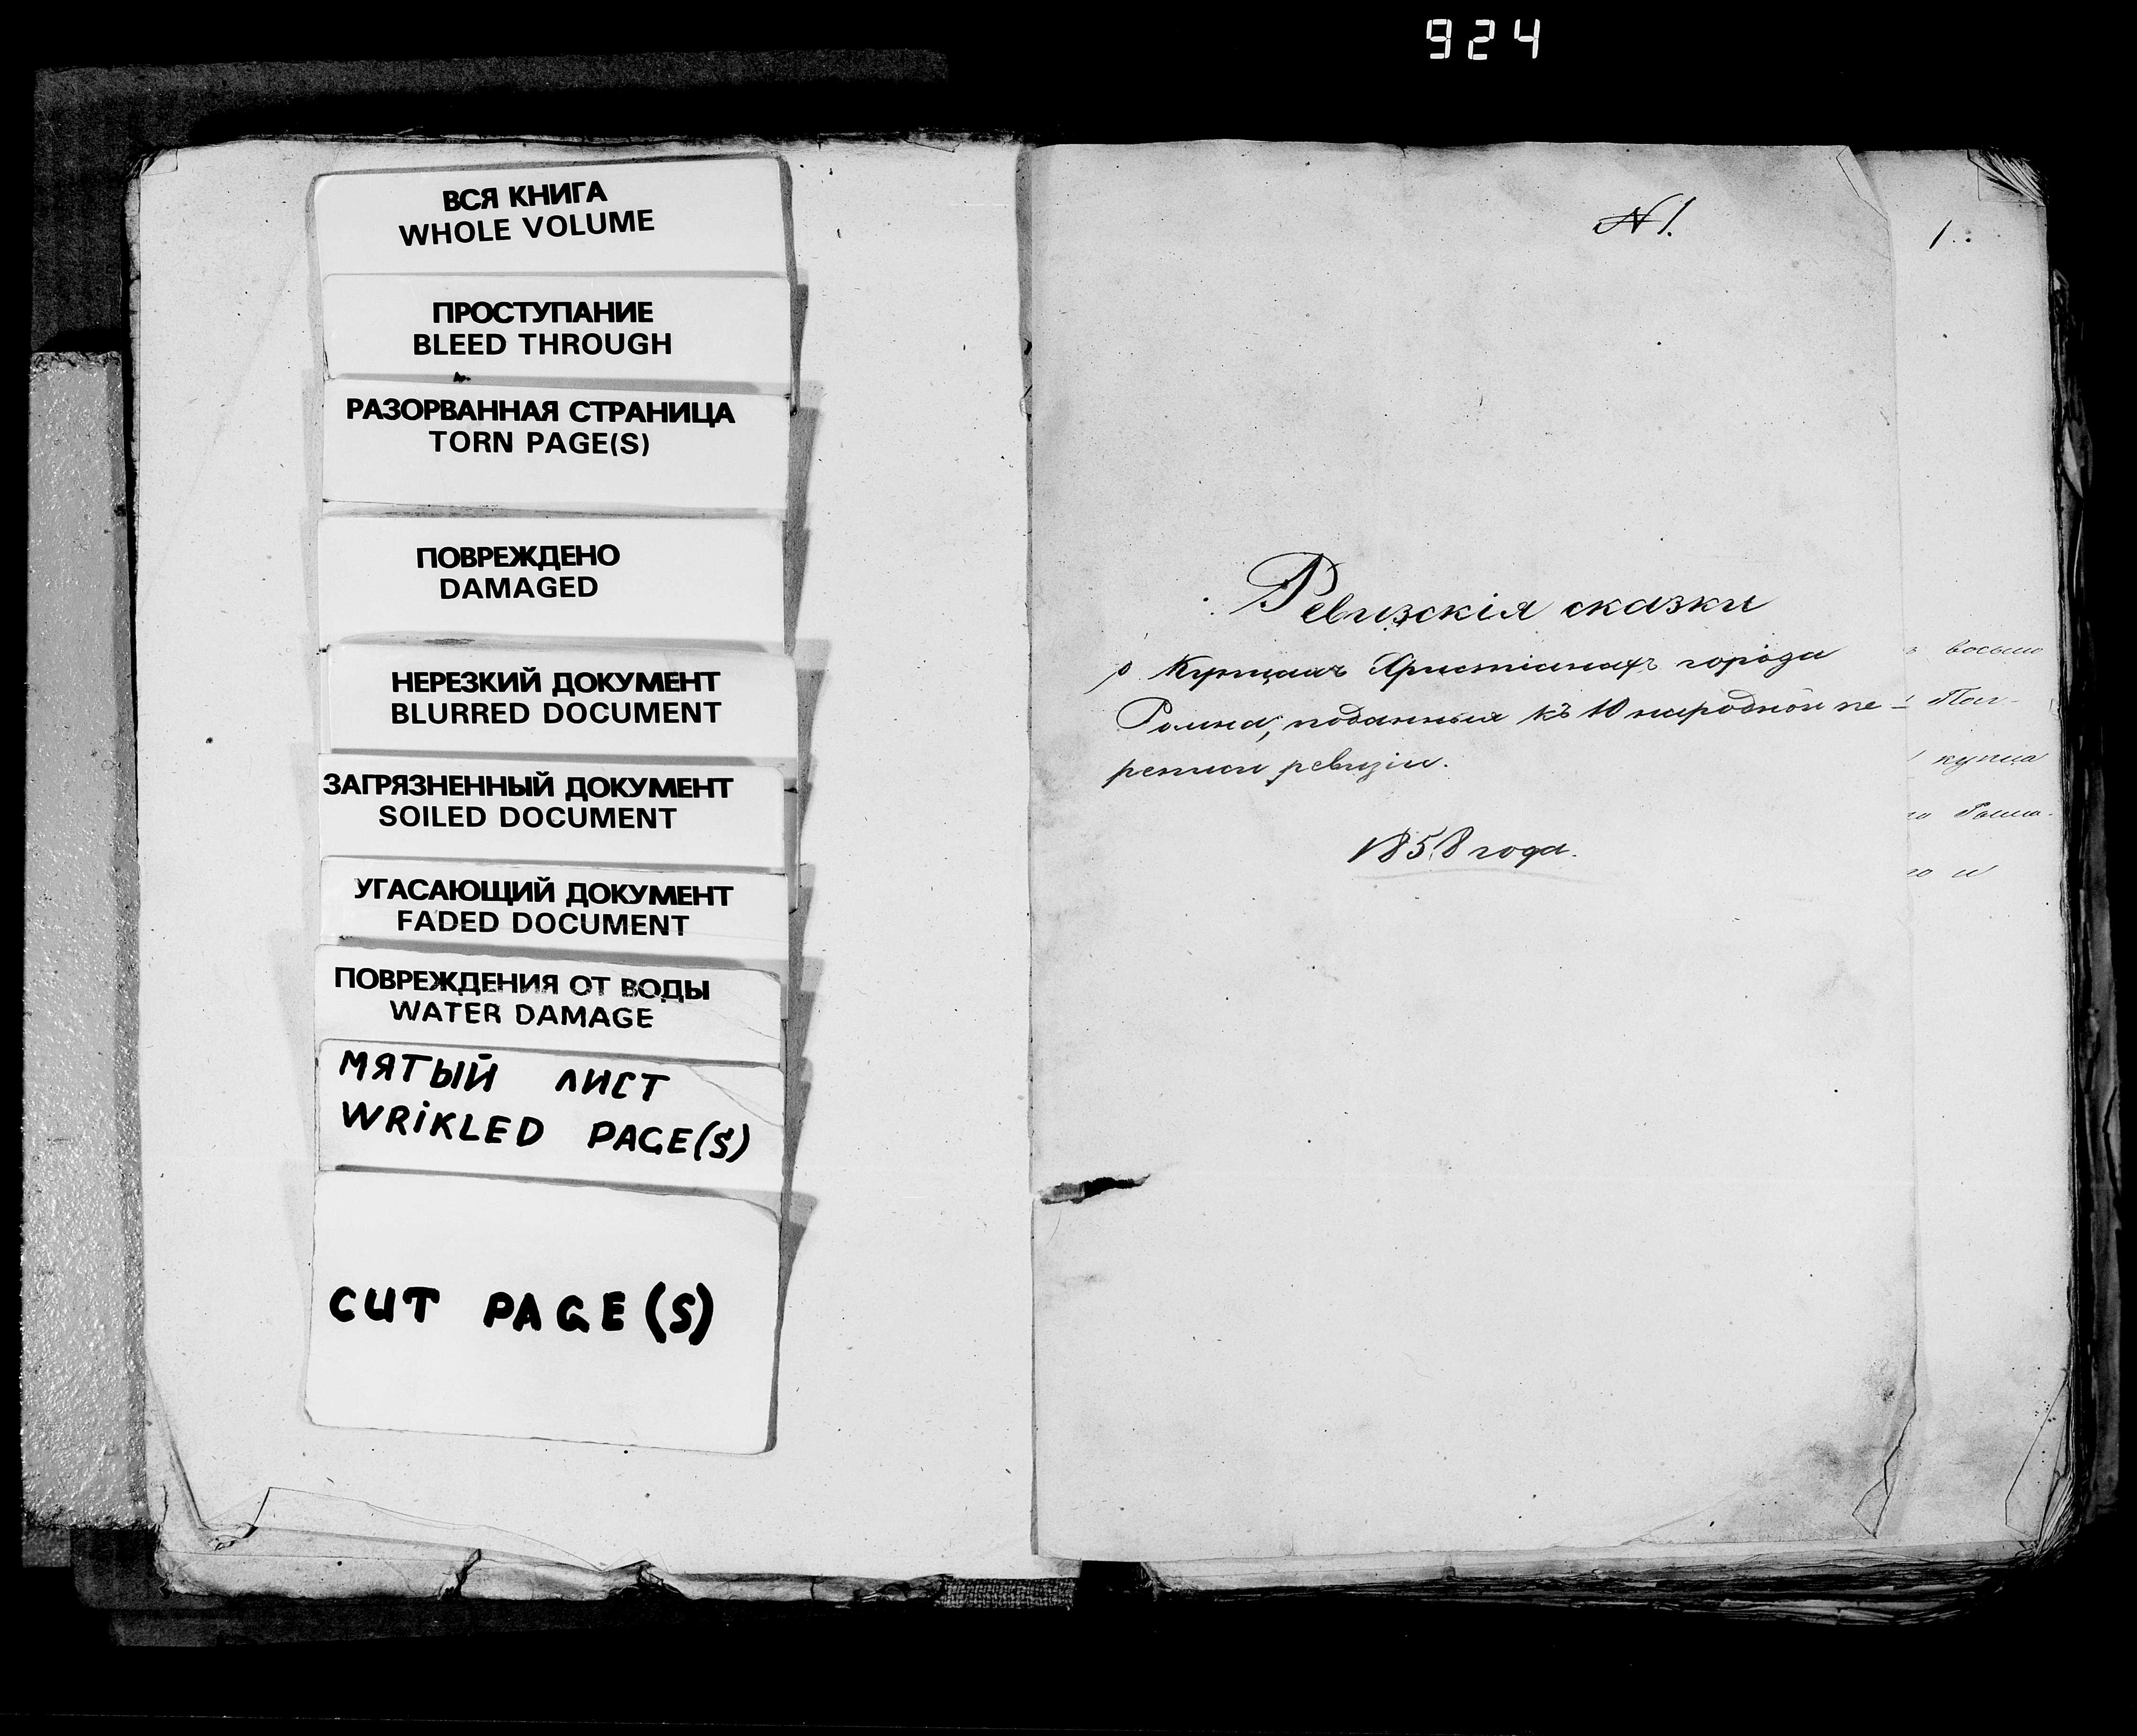 924
ВСЯ КНИГА
WHOLE VOLUME
ПРОСТУПАНИЕ
BLEED THROUGH
РАЗОРВАННАЯ СТРАНИЦА
TORN PAGE(S)
ПОВРЕЖДЕНО
DAMAGED
НЕРЕЗКИЙ ДОКУМЕНТ
BLURRED DOCUMENT
ЗАГРЯЗНЕННЫЙ ДОКУМЕНТ
SOILED DOCUMENT
УГАСАЮЩИЙ ДОКУМЕНТ
FADED DOCUMENT
ПОВРЕЖДЕНИЯ ОТ ВОДЫ
WATER DAMAGE
МЯТЫЙ ЛИСТ
WRIKLED PAGE(S)
CUT PAGE(S)
N 1.
Ревизскія сказки
о Купцахъ Христіанахъ города
Ромна, поданныя къ 10 народной пе-
реписи ревизіи.
1858 года.
1.
восьмо
купца
и